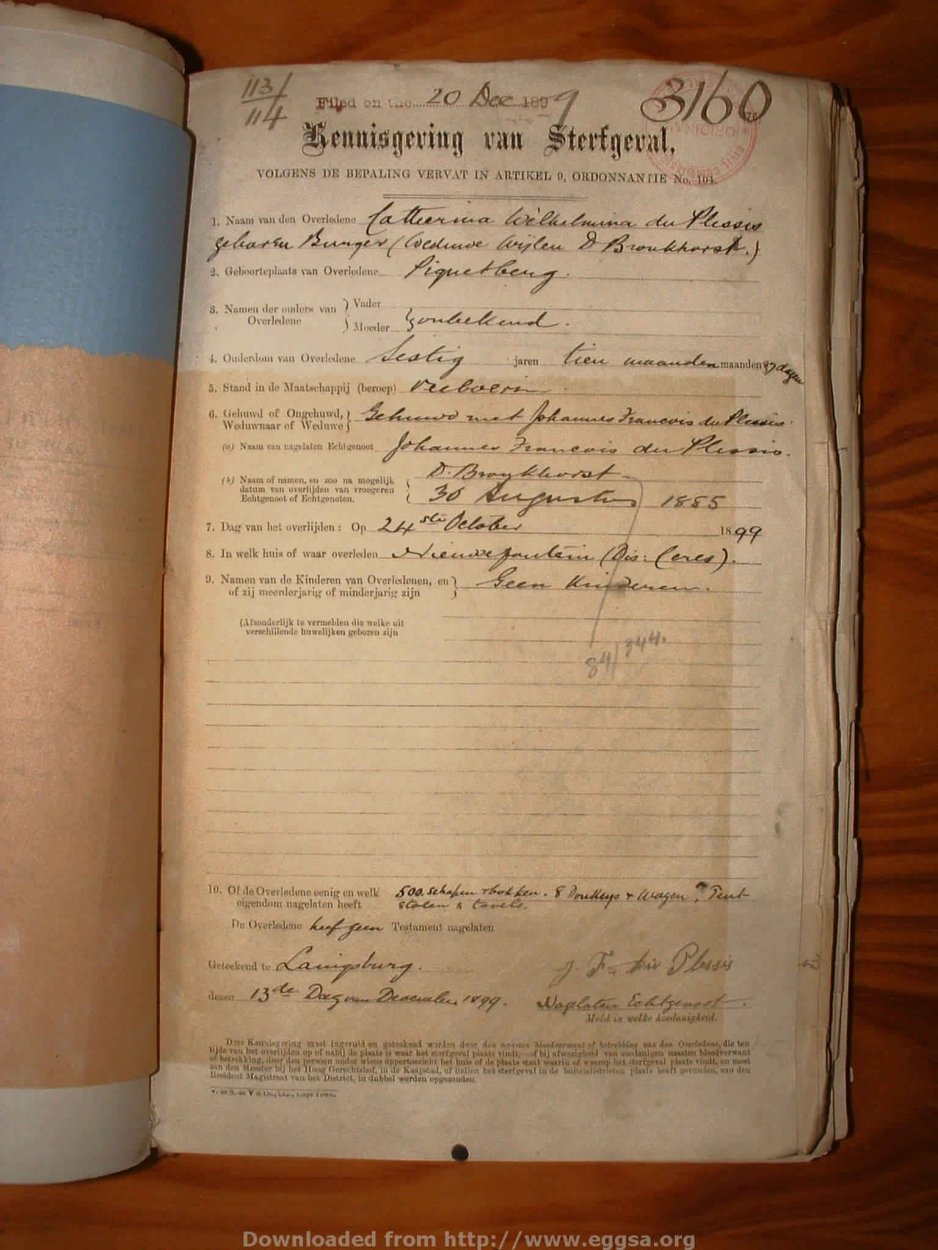 113/114
Filed on the 20 Dec 1899
3160
Kennisgeving van Sterfgeval,
VOLGENS DE BEPALING VERVAT IN ARTIKEL 9, ORDONNANTIE No. 104.
1. Naam van den Overledene Catherina Wilhelmina du Plessis
geboren Burger (Weduwe wijlen D Bronkhorst.)
2. Geboorteplaats van Overledene Piquetberg.
3. Namen der ouders van Overledene } Vader
Moeder } onbekend.
4. Ouderdom van Overledene Sestig jaren tien maanden maanden 27 dagen
5. Stand in de Maatschappij (beroep) Veeboerin
6. Gehuwd of Ongehuwd, Weduwnaar of Weduwe } Gehuwd met Johannes Francois du Plessis.
(a) Naam van nagelaten Echtgenoot Johannes Francois du Plessis.
(b) Naam of namen, en zoo na mogelijk datum van overlijden van vroegeren Echtgenoot of Echtgenoten. { D. Bronkhorst
30 Augustus 1885
7. Dag van het overlijden: Op 24ste October 1899
8. In welk huis of waar overleden Nieuwefontein (Dis: Ceres).
9. Namen van de Kinderen van Overledenen, en of zij meerderjarig of minderjarig zijn } Geen Kinderen.
(Afzonderlijk te vermelden die welke uit
verschillende huwelijken geboren zijn
84/344.
10. Of de Overledene eenig en welk 500 schapen & bokken. 8 Donkeys & Wagen Tent
eigendom nagelaten heeft stolen & tavels.
De Overledene heef geen Testament nagelaten
Geteekend te Laingsburg. J F du Plessis
dezen 13de Dag van December 1899. Naglaten Echtgenoot.
Meld in welke hoedanigheid.
Deze Kennisgeving moet ingevuld en geteekend worden door den naasten bloedverwant of betrekking van den Overledene, die ten
tijde van het overlijden op of nabij de plaats is waar het sterfgeval plaats vindt,—of bij afwezigheid van zoodanigen naasten bloedverwant
of betrekking, door den persoon onder wiens oppertoezicht het huis of de plaats staat waarin of waarop het sterfgeval plaats vindt, en moet
aan den Meester bij het Hoog Gerechtshof, in de Kaapstad, of indien het sterfgeval in de buitendistricten plaats heeft gevonden, aan den
Resident Magistraat van het District, in dubbel worden opgezonden.
Downloaded from http://www.eggsa.org